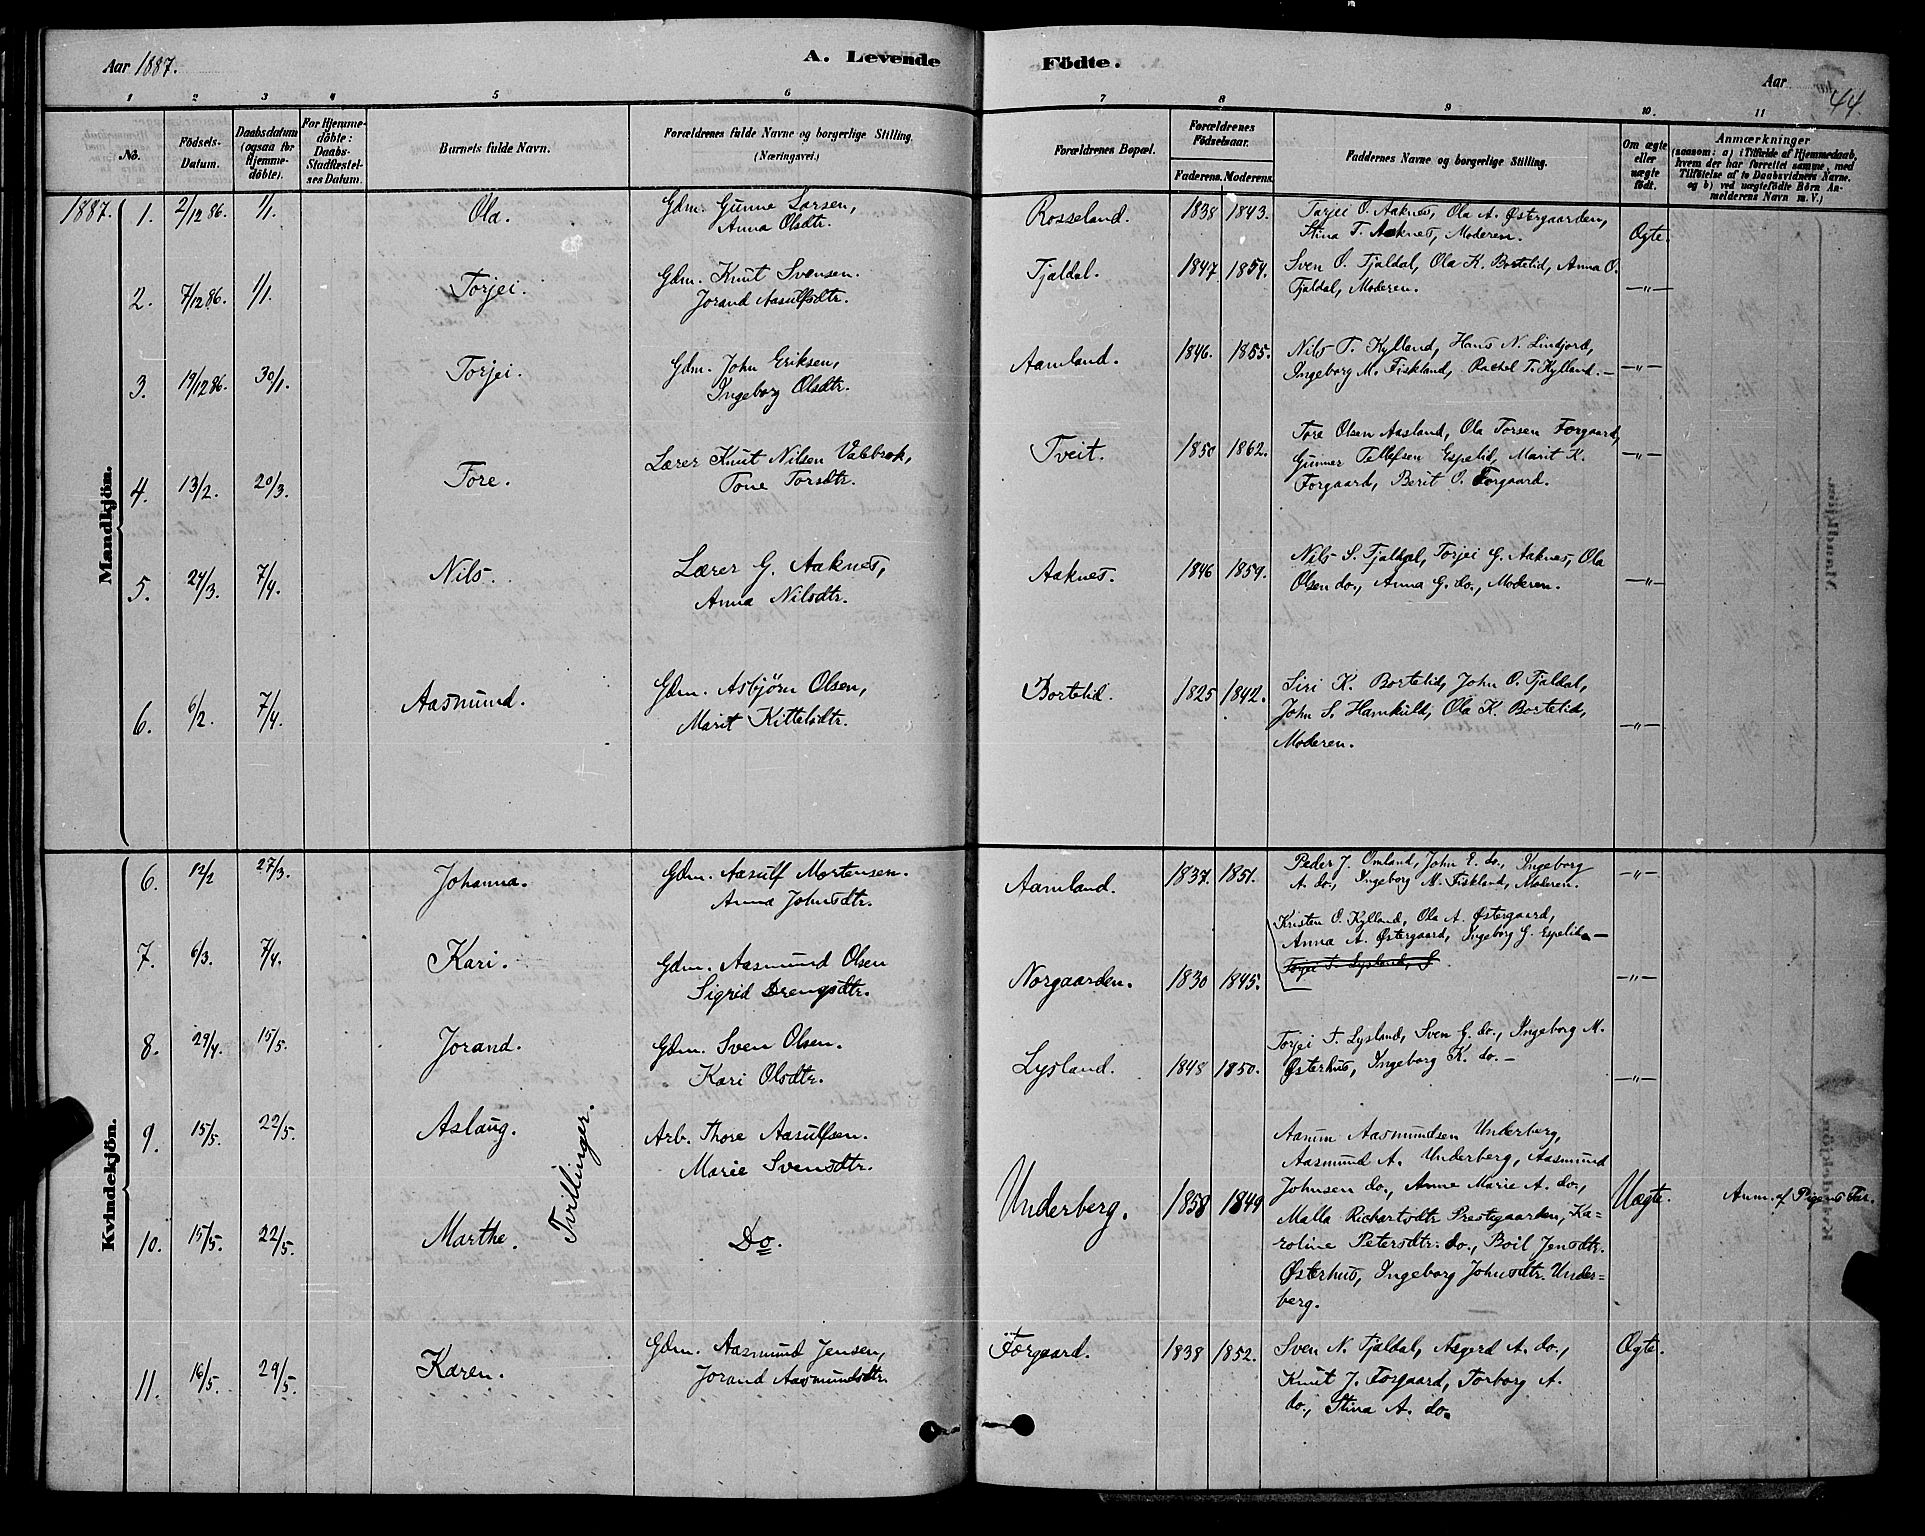 Aar 1887.
A. Levende Födte.
Aar
44.
1 2 3 4 5 6 7 8 9 10. 11
No.
Födsels-Datum.
Daabsdatum (ogsaa for Hjemme-döbte).
For Hjemme-döbte: Daabs-Stadfæstel-ses Datum.
Barnets fulde Navn.
Forældrenes fulde Navne og borgerlige Stilling. (Næringsvei.)
Forældrenes Bopæl.
Forældrenes Födselsaar.
Faderens. Moderens.
Faddernes Navne og borgerlige Stilling.
Om ægte eller uægte födt.
Anmærkninger
(saasom: a) i Tilfælde af Hjemmedaab, hvem der har forrettet samme, med Tilföielse af to Daabsvidners Navne. og b) ved uægtefödte Börn An-melderens Navn m. V.)
Mandkjön.
1887. 1. 2/12 86. 1/1. Ola. Gdm. Gunne Larsen, Rosseland. 1838 1843. Tarjei O. Aaknes, Ola A. Østergaarden,
Anna Olsdtr. Stina T. Aaknes, Moderen. Ægte.
2. 7/12 86. 1/1. Torjei. Gdm. Knut Svensen. Tjaldal. 1847 1854. Sven O. Tjaldal, Ola K. Bortelid, Anna O.
Jorand Aasulfsdtr. Tjaldal, Moderen. —"—
3. 19/12 86. 30/1. Torjei. Gdm. John Eriksen, Aamland. 1846. 1855. Nils T. Kylland, Hans N. Lindjord,
Ingeborg Olsdtr. Ingeborg M. Fiskland, Rachel T. Kylland. — —"—
4. 13/2. 20/3. Tore. Lærer Knut Nilsen Valebrok, Tveit. 1850 1862. Tore Olsen Aasland, Ola Torsen Forgaard,
Tone Torsdtr. Gunner Tellefsen Espelid, Marit K. —"—
Forgaard, Berit O. Forgaard.
5. 24/3. 7/4. Nils. Lærer G. Aaknes, Aaknes. 1846 1859. Nils S. Tjaldal, Torjei G. Aaknes, Ola
Anna Nilsdtr. Olsen do., Anna G. do., Moderen. —"—
6. 6/2. 7/4. Aasmund. Gdm. Asbjörn Olsen, Bortelid. 1825 1842. Siri K. Bortelid, John O. Tjaldal,
Marit Kittelsdtr. John S. Hamkuld, Ola K. Bortelid, —"—
Moderen.
Kvindekjön.
6. 12/2 27/3. Johanna. Gdm. Aasulf Mortensen. Aamland. 1837. 1851. Peder J. Omland, John E. do., Ingeborg
Anna Johnsdtr. A. do., Ingeborg M. Fiskland, Moderen. —"—
7. 6/3. 7/4. Kari. Gdm. Aasmund Olsen Norgaarden. 1830 1845. Kristen O. Kylland, Ola A. Østergaard,
Sigrid Drengsdtr. Anna A. Østergaard, Ingeborg G. Espelid. —
Torjei T. Lysland, S —"—
8. 29/4. 15/5. Jorand. Gdm. Sven Olsen. Lysland. 1848 1850. Torjei T. Lysland, Sven G. do., Ingeborg M.
Kari Olsdtr. Østerhus, Ingeborg K. do. — —"—
9. 15/5. 22/5. Aslaug. Tvillinger. Arb. Thore Aasulfsen. Underberg. 1858 1849 Aanum Aasmundsen Underberg,
Marie Svensdtr. Aasmund A. Underberg, Aasmund
Johnsen do., Anne Marie A. do., Uægte. Anm. af Pigens Far.
10. 15/5. 22/5. Marthe. Do. Malla Richartsdtr Prestegaarden, Ka-
roline Petersdtr. do., Boil Jensdtr.
Østerhus, Ingeborg Johnsdtr. Under-
berg.
11. 16/5. 29/5. Karen. Gdm. Aasmund Jensen, Forgaard. 1838 1852. Sven N. Tjaldal, Asgerd A. do., Ægte.
Jorand Aasmundsdtr. Knut J. Forgaard, Torborg A.
do., Stina A. do.